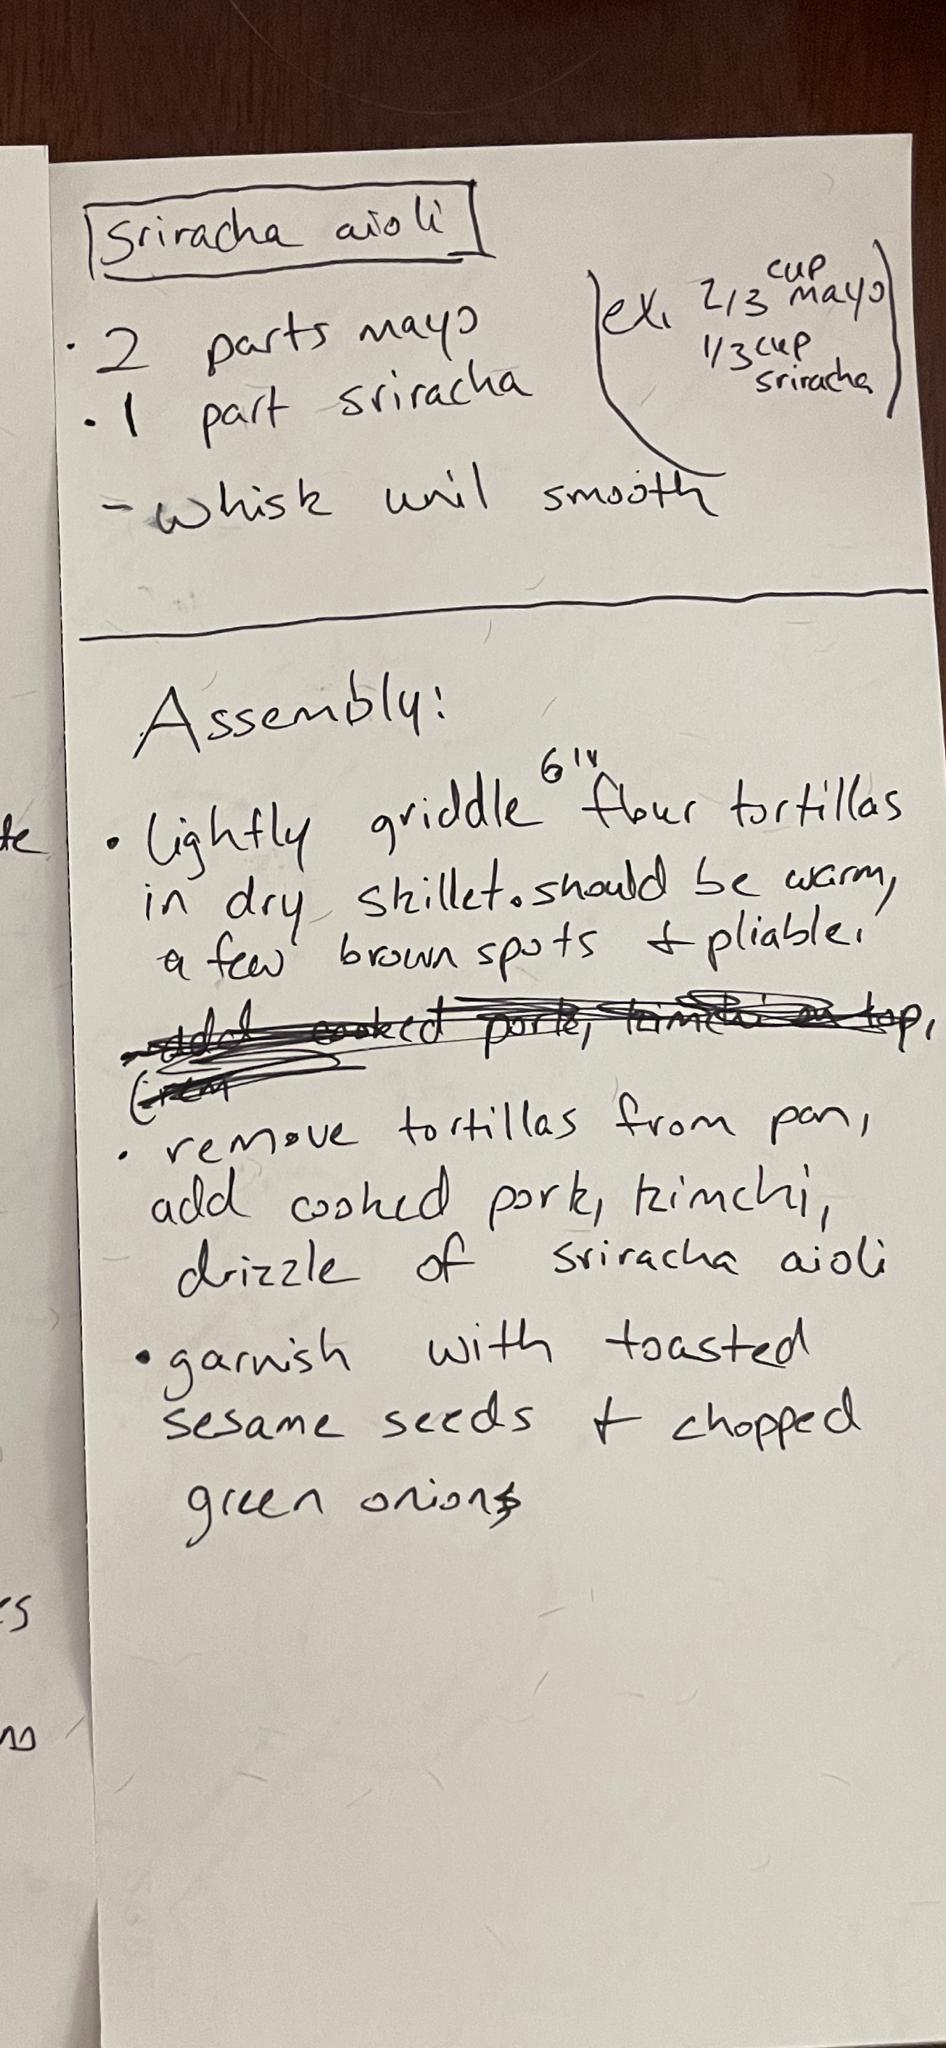 Sriracha aioli
· 2 parts mayo
· 1 part sriracha
(ex. 2/3 cup mayo
1/3 cup
sriracha)
- whisk unil smooth
Assembly:
· lightly griddle 6in flour tortillas
in dry skillet. should be warm,
a few brown spots + pliable.
add cooked pork, kimchi on top,
· remove tortillas from pan,
add cooked pork, kimchi,
drizzle of sriracha aioli
· garnish with toasted
sesame seeds + chopped
green onions